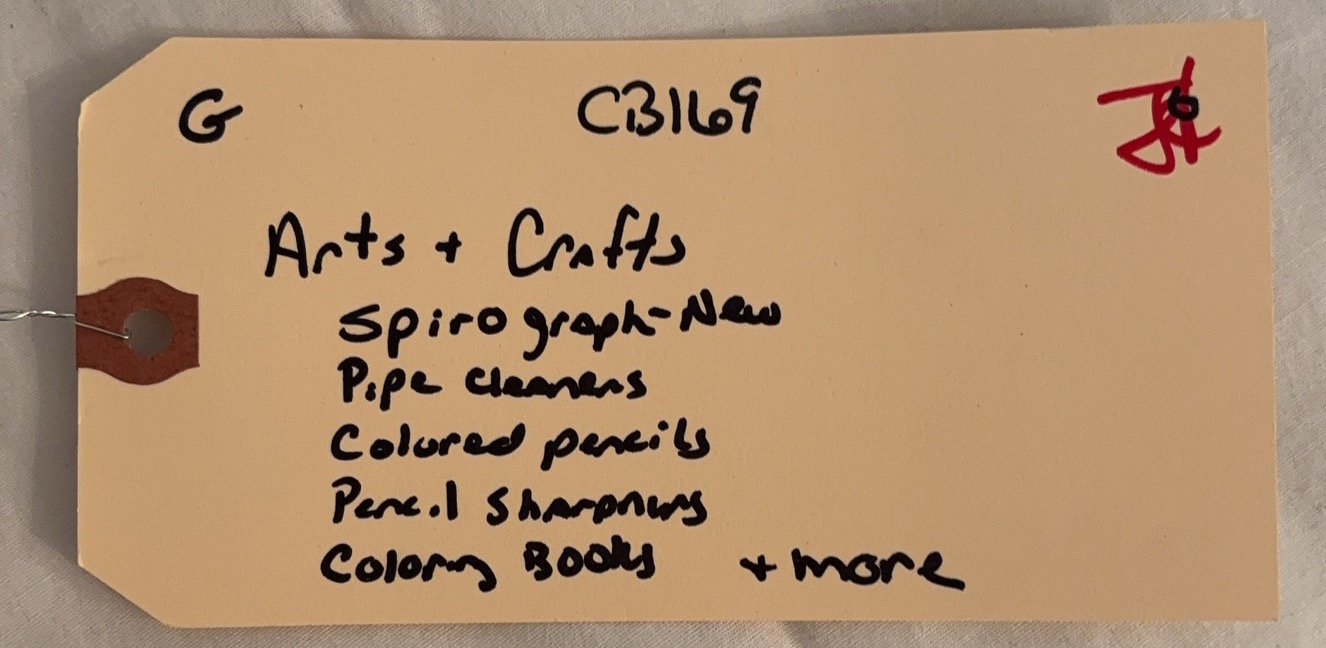 G CB169
Arts + Crafts
Spirograph-New
Pipe cleaners
Colored pencils
Pencil Sharpners
Coloring Books + more